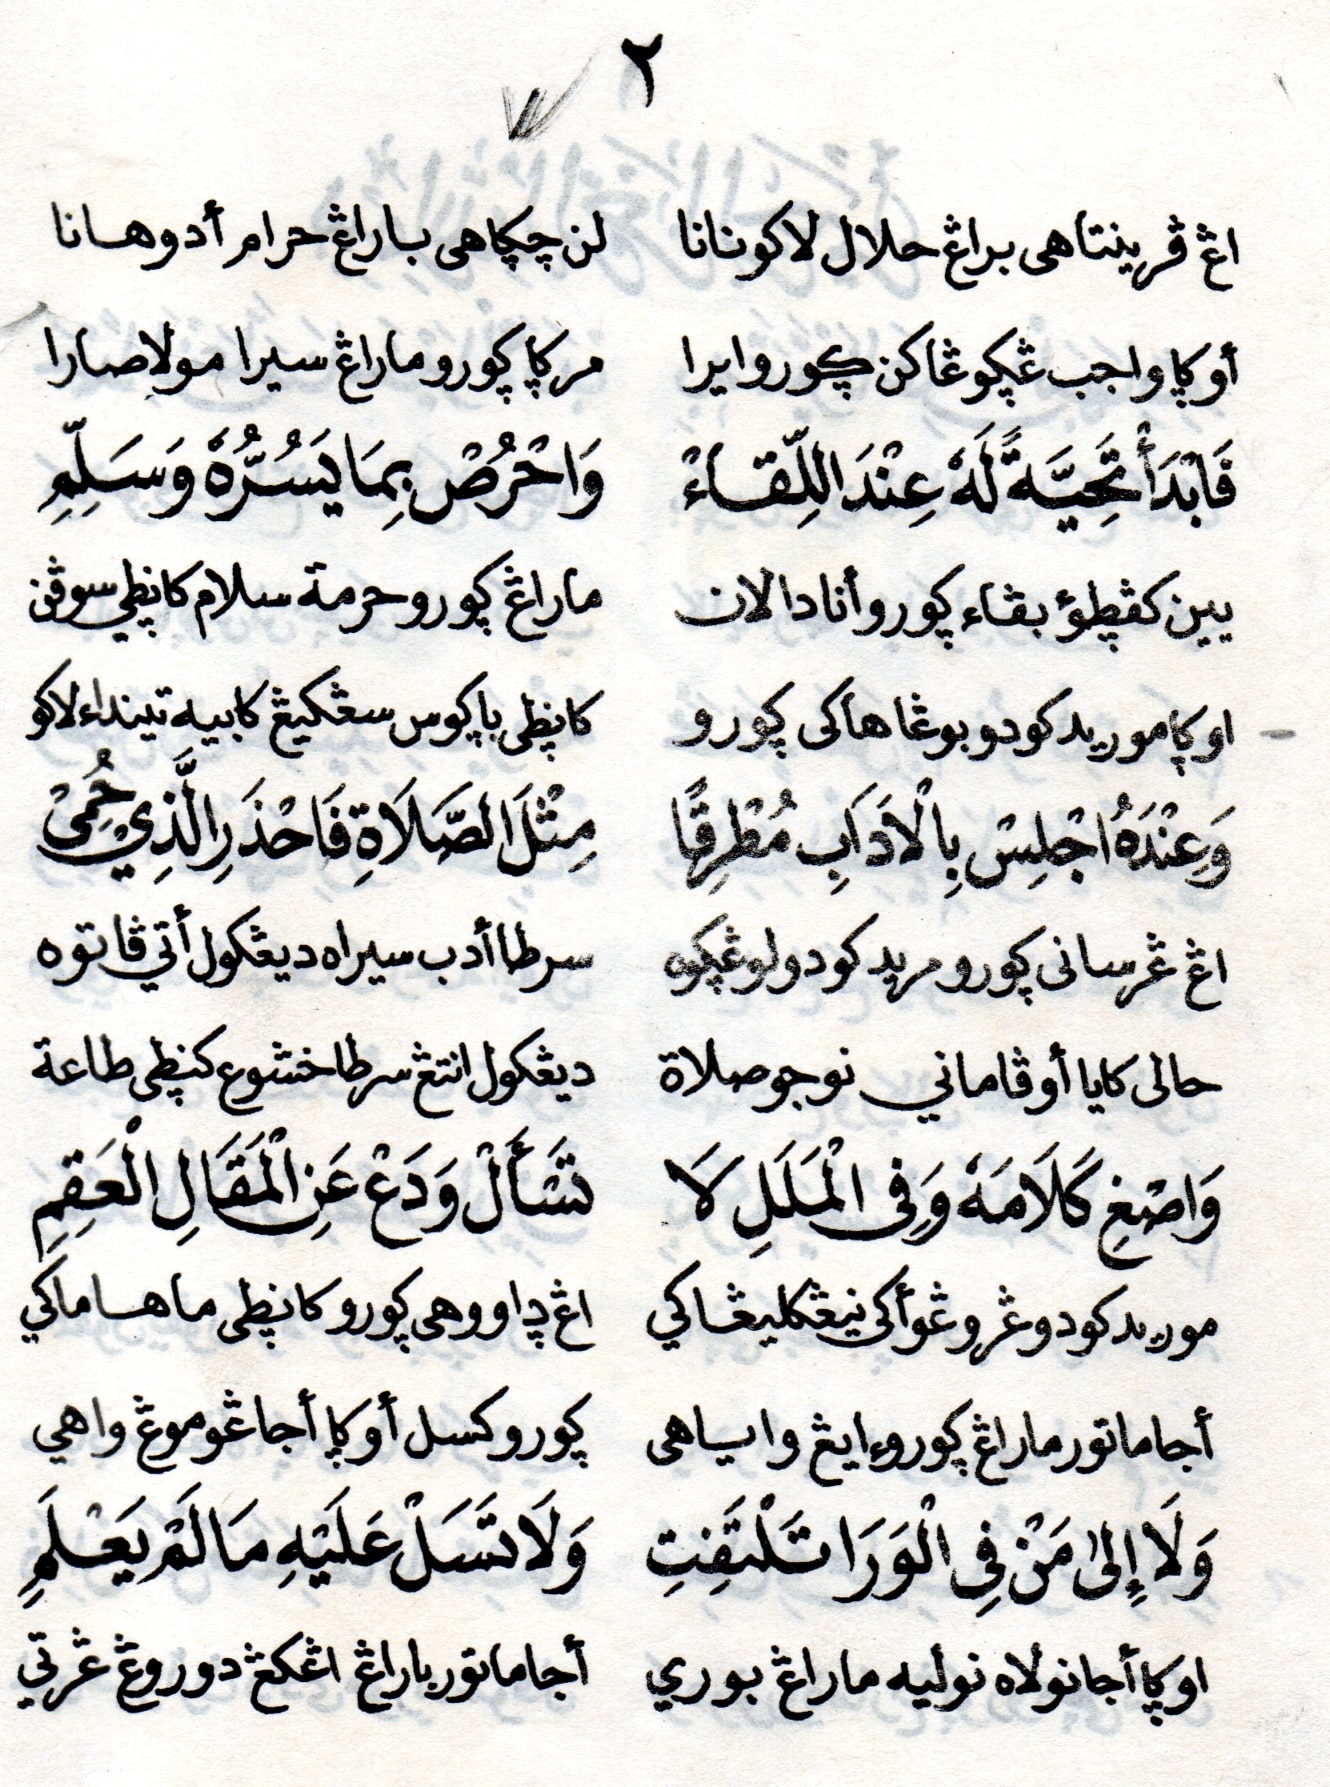 ٢
اڠ ڤرينتاهى براڠ حلال لاكونانا لن چݢاهى باراڠ حرام أدوهانا
أوݢا واجب ڠݢوڠاكن ݢوروايرا مركا ݢورو ماراڠ سيرا مولا صارا
فَابْدَأْ تَحِيَّةً لَهُ عِنْدَ اللِّقَاءْ وَاحْرُصْ بِمَا يَسُرُّهُ وَسَلِّمِ
يين كڤڟؤ بڤاء ݢورو أنا دالان ماراڠ ݢورو حرمة سلام كانڟي سوڤن
اوݢا موريد كودو بوڠاهاكى ݢورو كانڟى باݢوس سڠكيڠ كابيه تينداء لاكو
وَعِنْدَهُ اجْلِسْ بِالْاَدَابِ مُطْرِقًا مِثْلَ الصَّلَاةِ فَاحْذَرِ الَّذِيْ حُمِىْ
اڠ ڠرسانى ݢورو مريد كودو لوڠݢوه سرطا أدب سيراه ديڠكول أتي ڤاتوه
حالى كايا أوڤاماني نوجو صلاة ديڠكول انتڠ سرطا خشوع كنڟى طاعة
وَاصْغِ كَلَامَهُ وَفِى الْمَلَلِ لَا تَسْأَلْ وَدَعْ عَنِ الْمَقَالِ الْعَقِمِ
موريد كودو ڠروڠوأكى نيڠكليڠاكي اڠ داووهى ݢورو كانڟى ماهاماكي
أجا ماتور ماراڠ ݢوروء ايڠ واياهى ݢورو كسل أوݢا أجا ڠوموڠ واهي
وَلَا إِلىٰ مَنْ فِى الْوَرَا تَلْتَفِتِ وَلَا تَسَلْ عَلَيْهِ مَا لَمْ يَعْلَمِ
اوݢا أجا نولاه نوليه ماراڠ بوري أجا ماتور باراڠ اڠكڠ دوروڠ ڠرتي